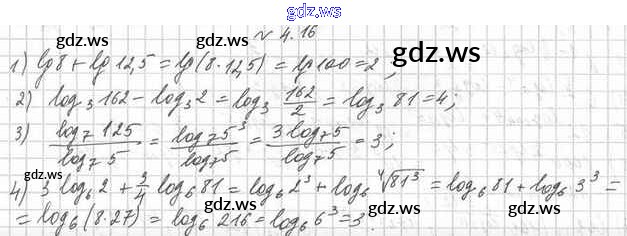 gdz.ws
№ 4.16
gdz.ws gdz.ws gdz.ws
1) lg 8 + lg 12,5 = lg (8 · 12,5) = lg 100 = 2;
2) log₃ 162 − log₃ 2 = log₃ 162/2 = log₃ 81 = 4;
3) log₇ 125 / log₇ 5 = log₇ 5³ / log₇ 5 = 3 log₇ 5 / log₇ 5 = 3;
4) 3 log₆ 2 + 3/4 log₆ 81 = log₆ 2³ + log₆ ⁴√81³ = log₆ 81 + log₆ 3³ =
= log₆ (8 · 27) = log₆ 216 = log₆ 6³ = 3.
gdz.ws gdz.ws gdz.ws